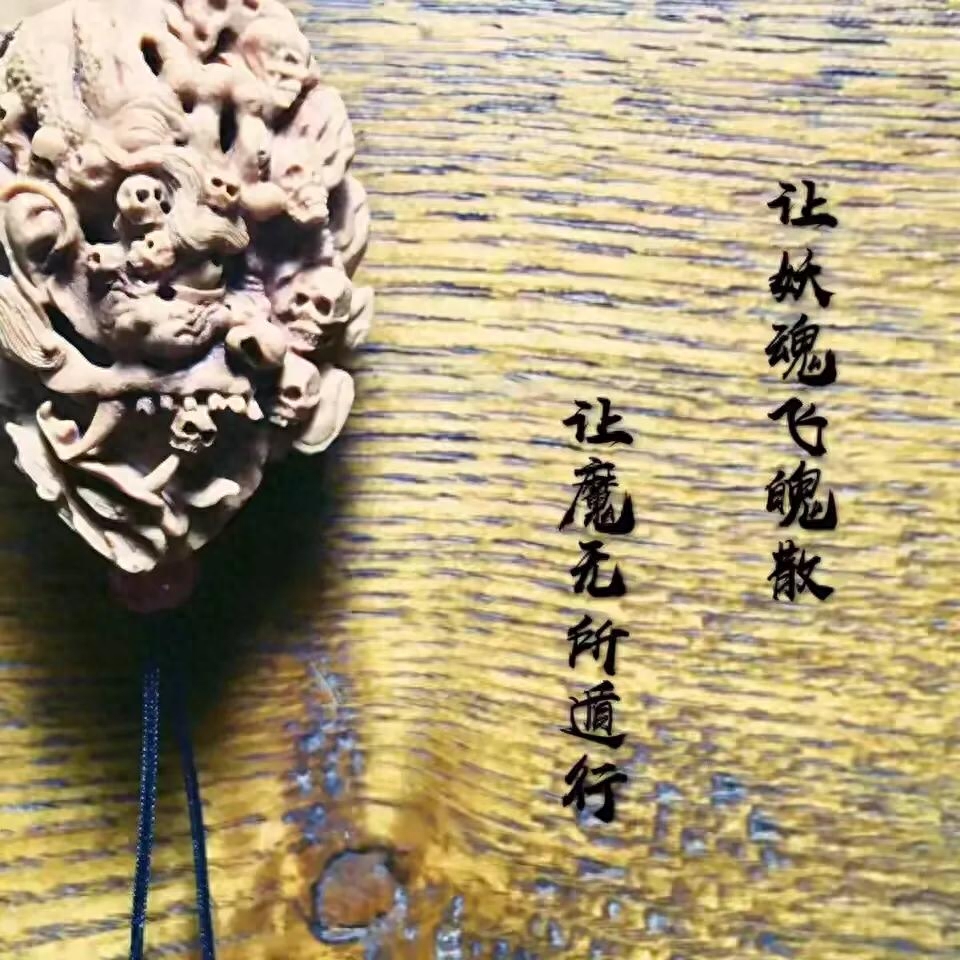 让妖魂飞魄散
让魔无所遁行